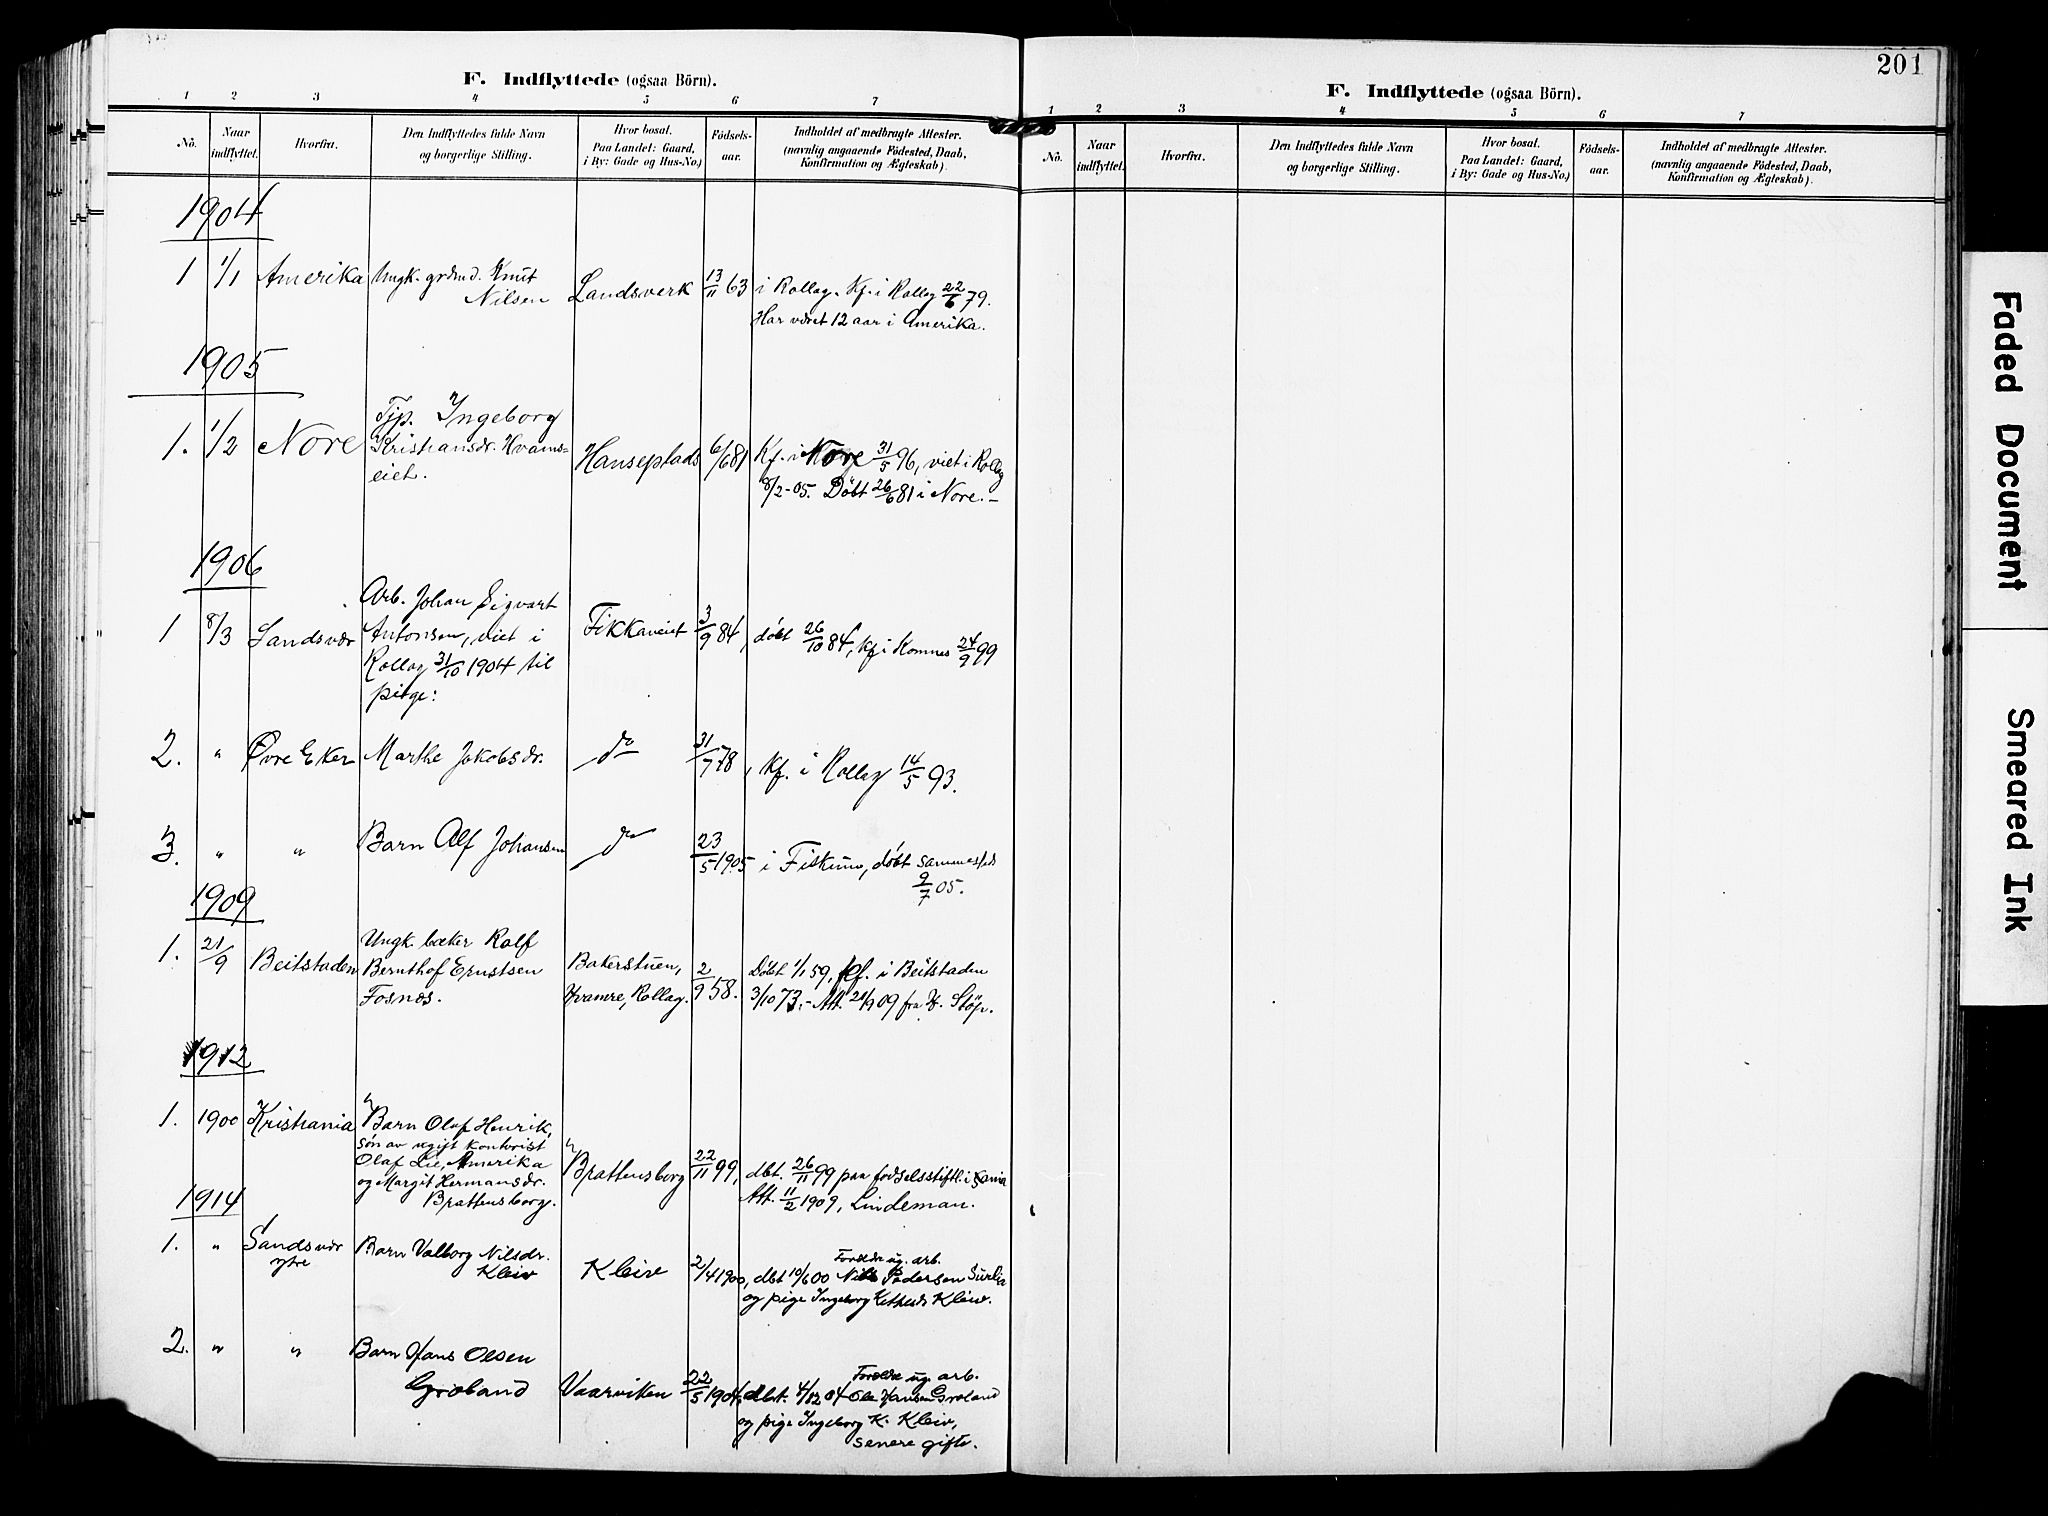 F. Indflyttede (ogsaa Börn).
1 2 3 4 5 6 7
Nö.
Naar indflyttet.
Hvorfra.
Den Indflyttedes fulde Navn
og borgerlige Stilling.
Hvor bosat.
Paa Landet: Gaard,
i By: Gade og Hus-No.)
Födsels-
aar.
Indholdet af medbragte Attester.
(navnlig angaaende Födested, Daab,
Konfirmation og Ægteskab).
1904
1 1/1 Amerika Ungk. grdmd. Knut
Nilsen Landsverk 13/11 63 i Rollag. Kf. i Rollag 22/6 79.
Har været 12 aar i Amerika.
1905
1. 1/2 Nore Tjp. Ingeborg
Kristiansdr. Hvams-
eiet. Hanseplads 6/6 81 Kf. i Nore 31/5 96, viet i Rollag
8/2-05. Döbt 26/6 81 i Nore. –
1906
1 8/3 Sandsvær Arb. Johan Sigvart
Antonsen, viet i
Rollag 31/10 1904 til
pige:
Fikkaneiet 3/9 84, döbt 26/10 84, kf i Komnes 24/9 99
2. " Øvre Eker Marthe Jakobsdr. do 31/7 78, kf. i Rollag 14/5 93.
3. " " Barn Alf Johansen do 23/5 1905 i Fiskum, döbt sammesteds
9/7 05.
1909
1. 21/9 Beitstaden Ungk. bæker Rolf
Bernthof Ernstsen
Fosnæs.
Bakerstuen,
Hvamre, Rollag. 2/9 58. Döbt 1/1 59, kf. i Beitstaden
3/10 73. – Att. 21/9 09 fra H. Stöp.
1912
1. 1900 Kristiania Barn Olaf Henrik,
søn av ugift kontorist
Olaf Lie, Amerika
og Margit Hermansdr.
Brattensborg.
Brattensborg 22/11 99, dbt. 26/11 99 paa fødselsstiftl. i Xania
Att. 11/2 1909, Lindeman.
1914
1. " Sandsvær
ytre Barn Valborg Nilsdr.
Kleiv Kleiv 2/4 1900, dbt 10/6 00 Forældre ug. arb.
Nils Pedersen Surlia
og pige Ingeborg Kleiv.
2. " " Barn Hans Olsen
Groland Vaarviken 22/5 1904, dbt. 4/12 04 Forældre ug. arb.
Ole Hansen Groland
og pige Ingeborg K. Kleiv,
senere gifte.
201
F. Indflyttede (ogsaa Börn).
1 2 3 4 5 6 7
Nö.
Naar indflyttet.
Hvorfra.
Den Indflyttedes fulde Navn
og borgerlige Stilling.
Hvor bosat.
Paa Landet: Gaard,
i By: Gade og Hus-No.)
Födsels-
aar.
Indholdet af medbragte Attester.
(navnlig angaaende Födested, Daab,
Konfirmation og Ægteskab).
Faded Document
Smeared Ink